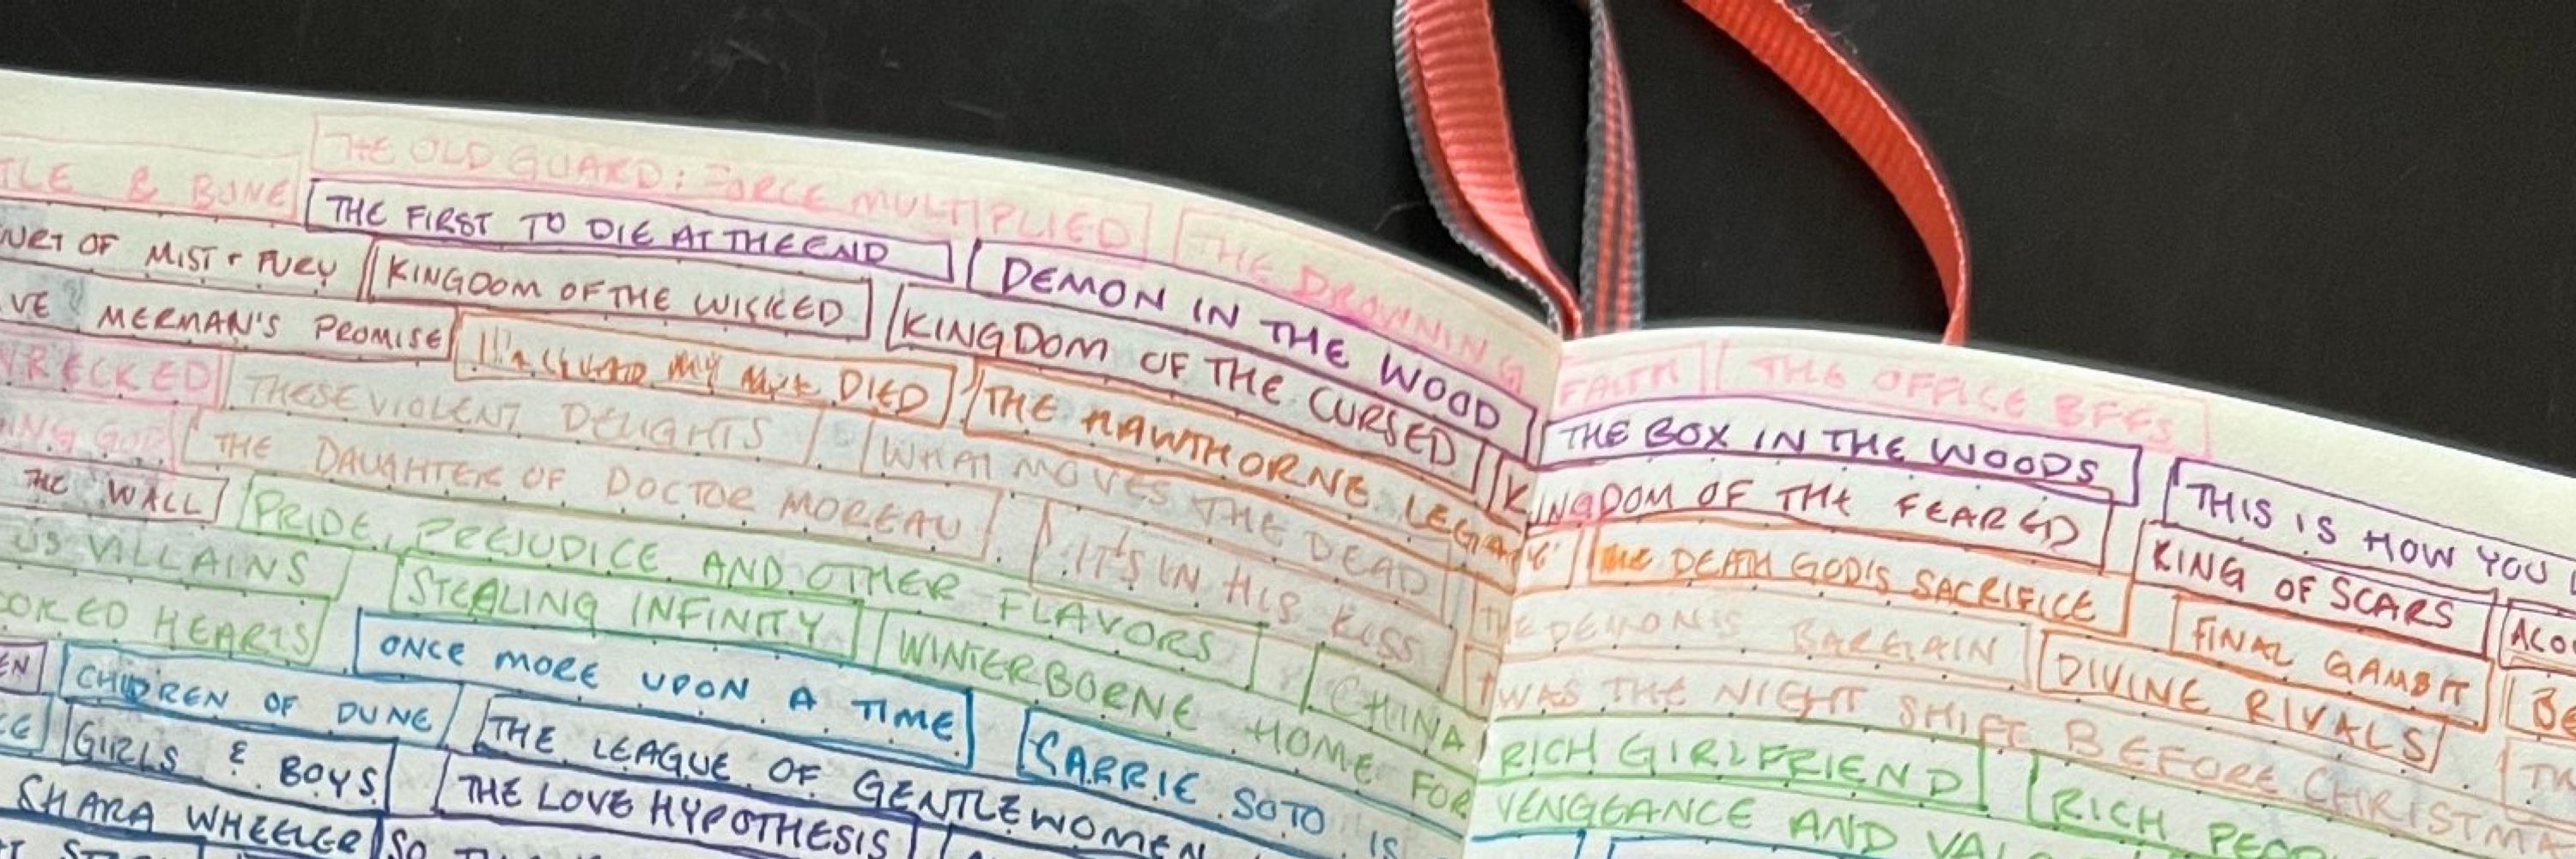 THE OLD GUARD: FORCE MULTIPLIED THE DROWNING FAITH THE OFFICE BFFS
TLE & BONE THE FIRST TO DIE AT THE END DEMON IN THE WOOD THE BOX IN THE WOODS THIS IS HOW YOU
URT OF MIST & FURY KINGDOM OF THE WICKED KINGDOM OF THE CURSED KINGDOM OF THE FEARED KING OF SCARS ACO
VE MERMAN'S PROMISE MY DIED THE HAWTHORNE LEGACY THE DEATH GOD'S SACRIFICE FINAL GAMBIT BE
WRECKED THESE VIOLENT DELIGHTS WHAT MOVES THE DEAD THE DEMON'S BARGAIN DIVINE RIVALS
ING GOD THE DAUGHTER OF DOCTOR MOREAU IT'S IN HIS KISS TWAS THE NIGHT SHIFT BEFORE CHRISTMA TW
THE WALL PRIDE, PREJUDICE AND OTHER FLAVORS CHINA RICH GIRLFRIEND RICH PEOP
US VILLAINS STEALING INFINITY WINTERBORNE HOME FOR VENGEANCE AND VAL
OOKED HEARTS ONCE MORE UPON A TIME CARRIE SOTO IS
EN CHILDREN OF DUNE THE LEAGUE OF GENTLEWOMEN
CE GIRLS & BOYS THE LOVE HYPOTHESIS
SHARA WHEELER SO